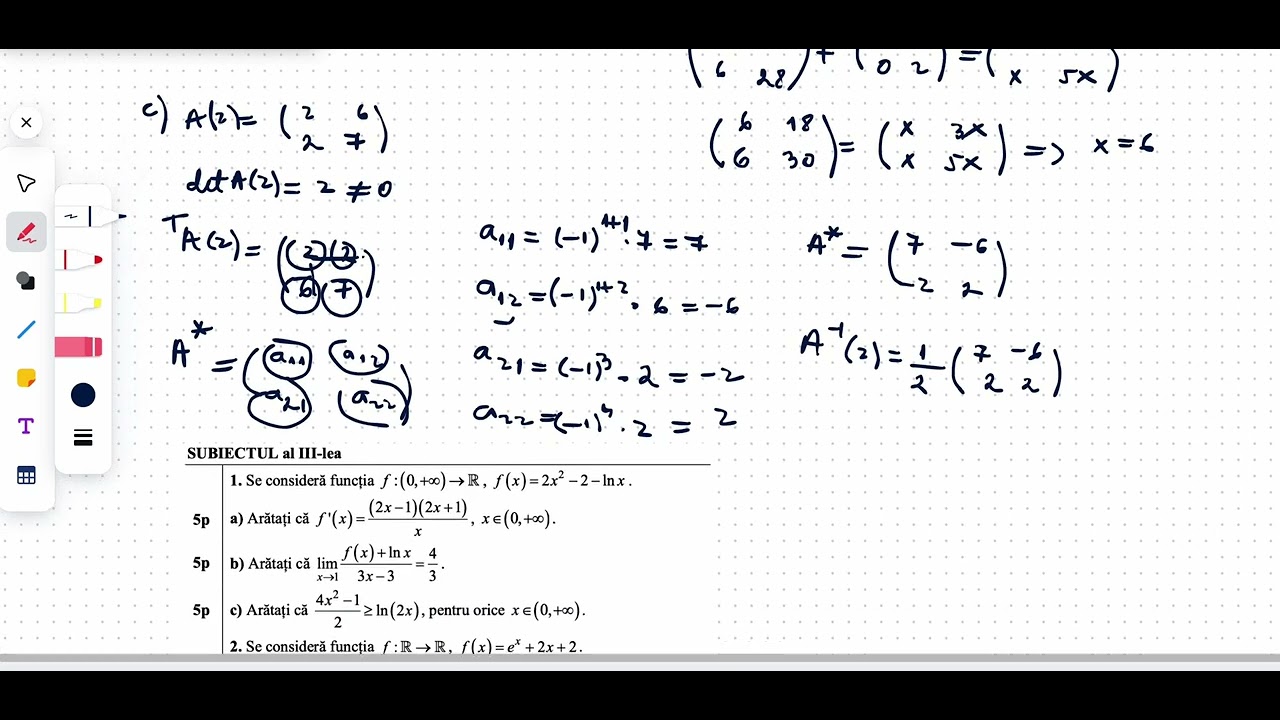 ( 6 28 ) + ( 0 2 ) = ( x 5x )
c) A(2) = ( 2 6
2 7 )
det A(2) = 2 ≠ 0
( 6 18
6 30 ) = ( x 3x
x 5x ) => x = 6
ᵀA(2) = ( 2 2
6 7 )
A* = ( a11 a12
a21 a22 )
a11 = (-1)^1+1 · 7 = 7
a12 = (-1)^1+2 · 6 = -6
a21 = (-1)^3 · 2 = -2
a22 = (-1)^4 · 2 = 2
A* = ( 7 -6
-2 2 )
A^-1(2) = 1/2 ( 7 -6
2 2 )
T
SUBIECTUL al III-lea
1. Se consideră funcția f : (0,+∞) → ℝ, f(x) = 2x² − 2 − ln x .
5p a) Arătați că f'(x) = (2x−1)(2x+1)/x , x ∈ (0,+∞) .
5p b) Arătați că lim x→1 f(x)+ln x / 3x−3 = 4/3 .
5p c) Arătați că 4x²−1/2 ≥ ln(2x) , pentru orice x ∈ (0,+∞) .
2. Se consideră funcția f : ℝ → ℝ, f(x) = eˣ + 2x + 2 .